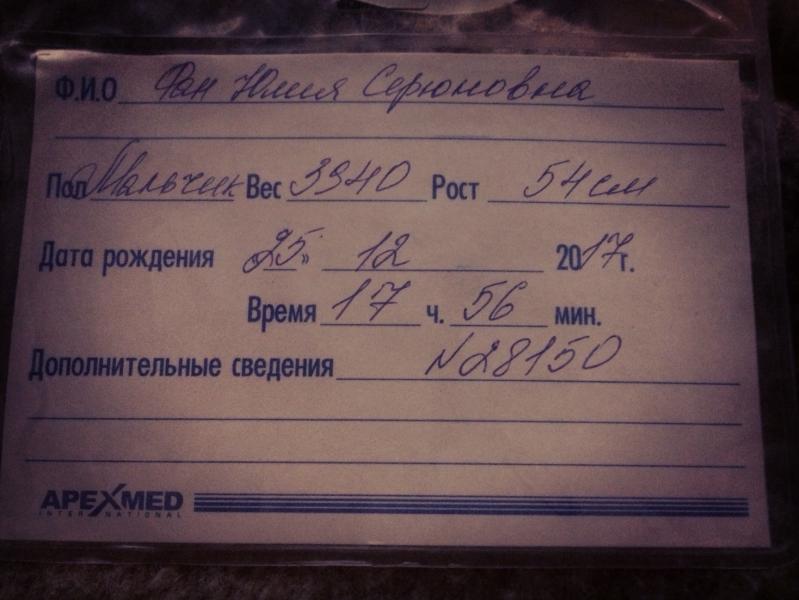 Ф.И.О Фан Юлия Серюновна
Пол Мальчик Вес 3940 Рост 54 см
Дата рождения «25» 12 2017г.
Время 17 ч. 56 мин.
Дополнительные сведения N28150
APEXMED
INTERNATIONAL